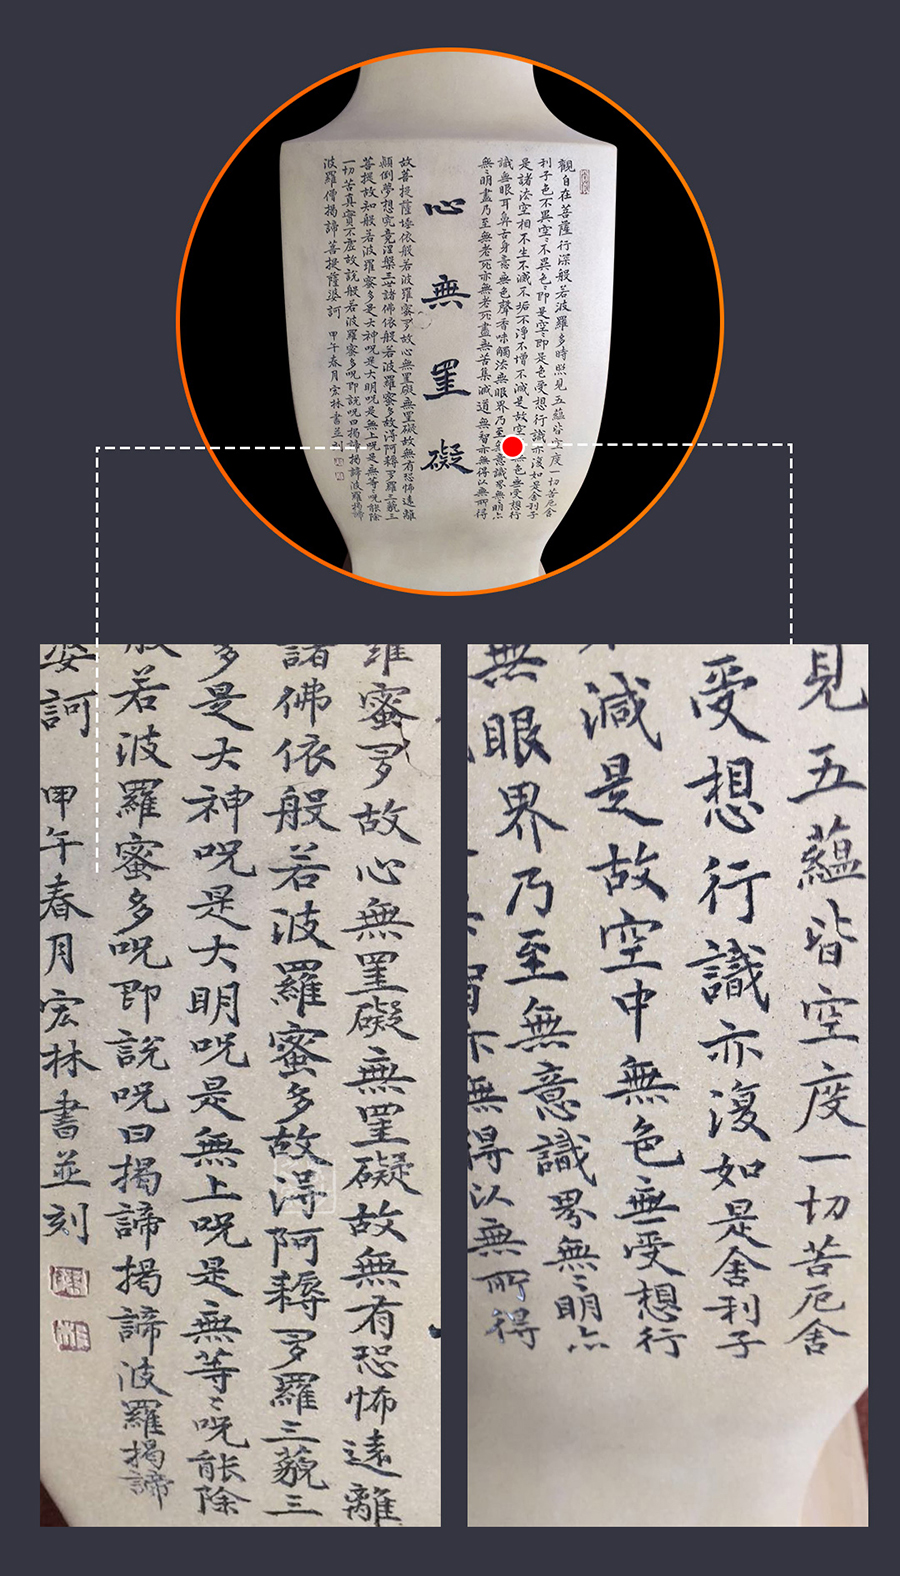 觀自在菩薩行深般若波羅多時照見五蘊皆空度一切苦厄舍
利子色不異空〻不異色〻即是空〻即是色受想行識亦復如是舍利子
是諸法空相不生不滅不垢不淨不增不減是故空無色無受想行
識無眼耳鼻舌身意無色聲香味觸法無眼界乃至無意識界無〻明亦
無〻明盡乃至無老死亦無老死盡無苦集滅道無智亦無得以無所得
心無罣礙
故菩提薩埵依般若波羅蜜多故心無罣礙無罣礙故無有恐怖遠離
顛倒夢想究竟涅槃三世諸佛依般若波羅蜜多故得阿耨多羅三藐三
菩提故知般若波羅蜜多是大神呪是大明呪是無上呪是無等〻呪能除
一切苦真實不虛故說般若波羅蜜多呪即說呪曰揭諦揭諦波羅揭諦
波羅僧揭諦菩提薩婆訶 甲午春月宏林書並刻
羅蜜多故心無罣礙無罣礙故無有恐怖遠離
諸佛依般若波羅蜜多故得阿耨多羅三藐三
多是大神呪是大明呪是無上呪是無等〻呪能除
般若波羅蜜多呪即說呪曰揭諦揭諦波羅揭諦
婆訶 甲午春月宏林書並刻
見五蘊皆空度一切苦厄舍
受想行識亦復如是舍利子
不減是故空中無色無受想行
無眼界乃至無意識界無〻明亦
智亦無得以無所得